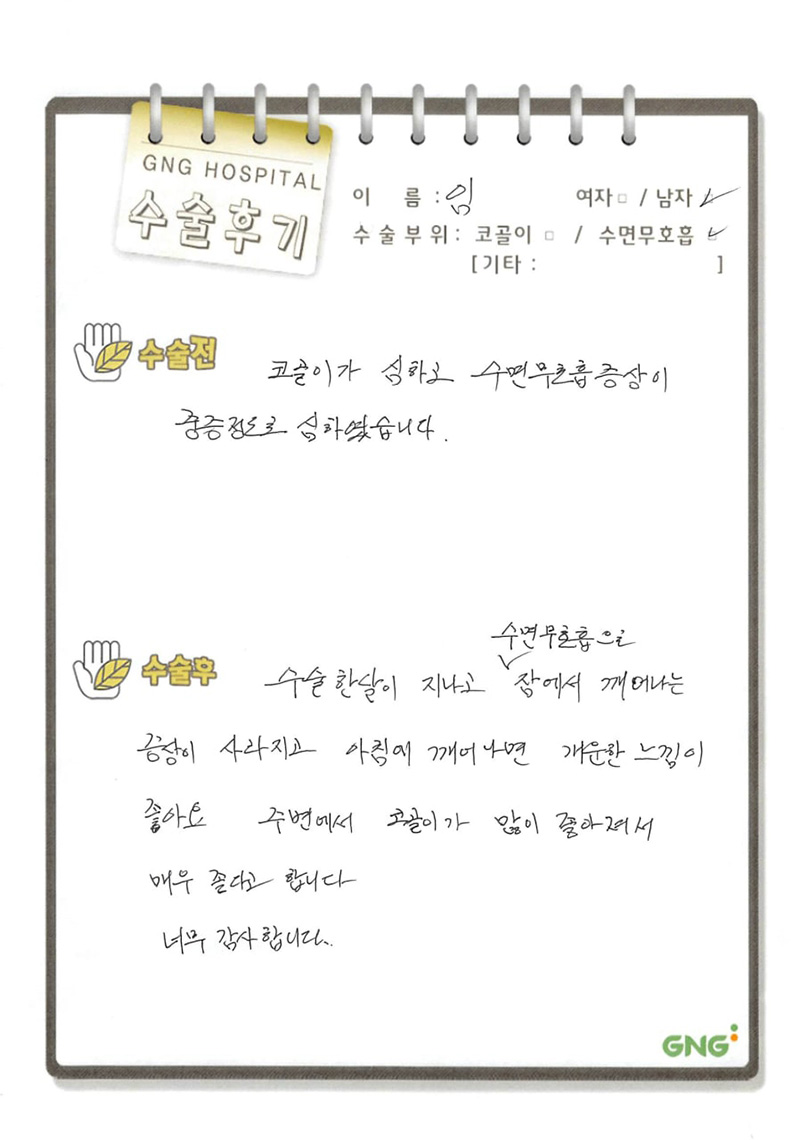 GNG HOSPITAL
수술후기
이 름 : 임 여자 □ / 남자 ✓
수술부위 : 코골이 □ / 수면무호흡 ✓
[기타 : ]
수술전 코골이가 심하고 수면무호흡증상이
중증정도로 심하였습니다.
수면무호흡으로
수술후 수술한살이 지나고 ✓ 잠에서 깨어나는
증상이 사라지고 아침에 깨어나면 개운한 느낌이
좋아요 주변에서 코골이가 많이 좋아져서
매우 좋다고 합니다
너무 감사합니다..
GNG